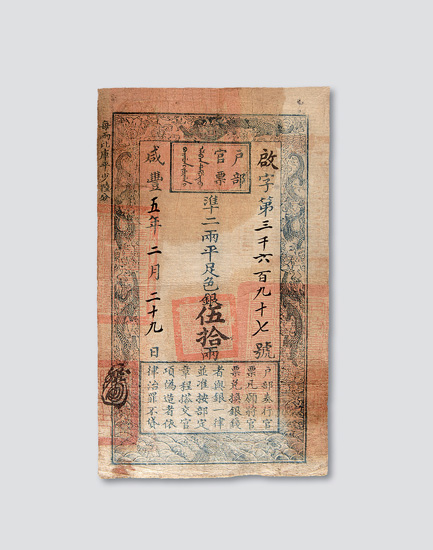 戶部
官票
啟字第三千六百九十七號
準二兩平足色銀伍拾兩
咸豐五年二月二十九日
每兩比庫平少陸分
戶部奏行官
票凡願將官
票兌換銀錢
者與銀一律
並准按部定
章程搭交官
項偽造者依
律治罪不貸